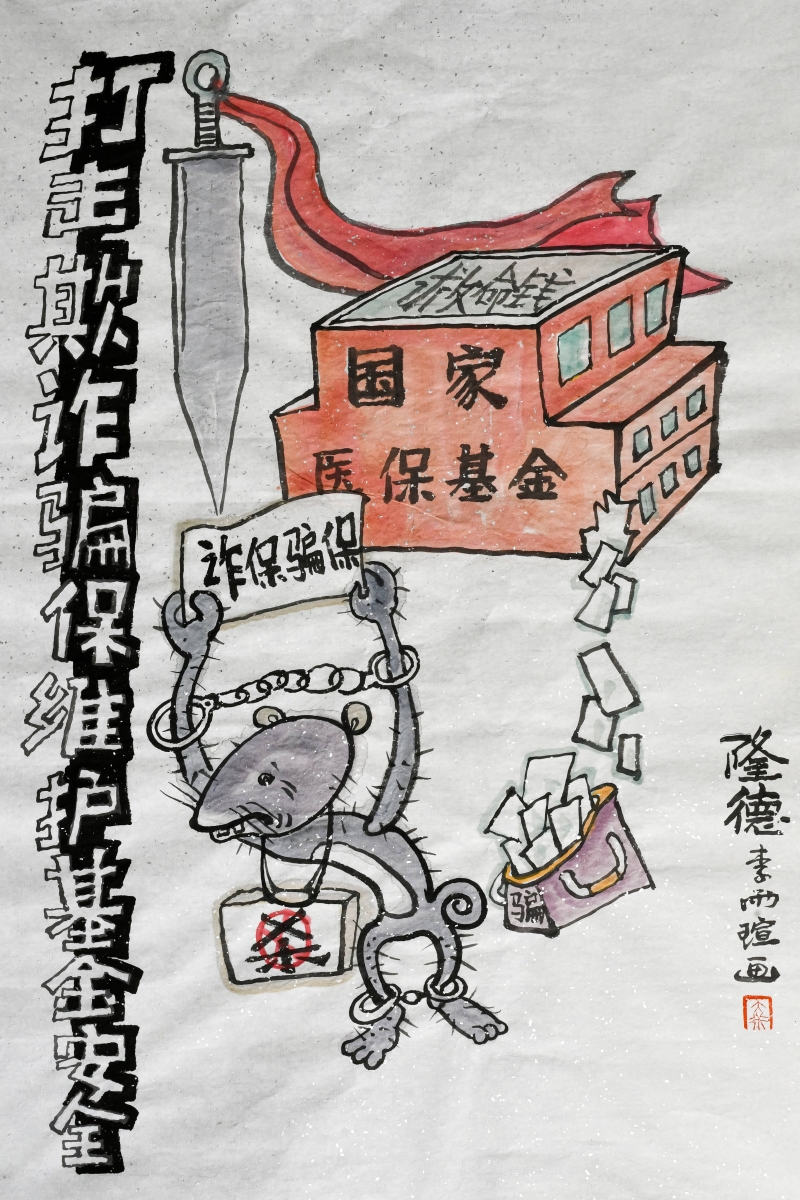 打击欺诈骗保维护基金安全
救命钱
国家
医保基金
诈保骗保
杀
骗
隆德
李雨瑄画